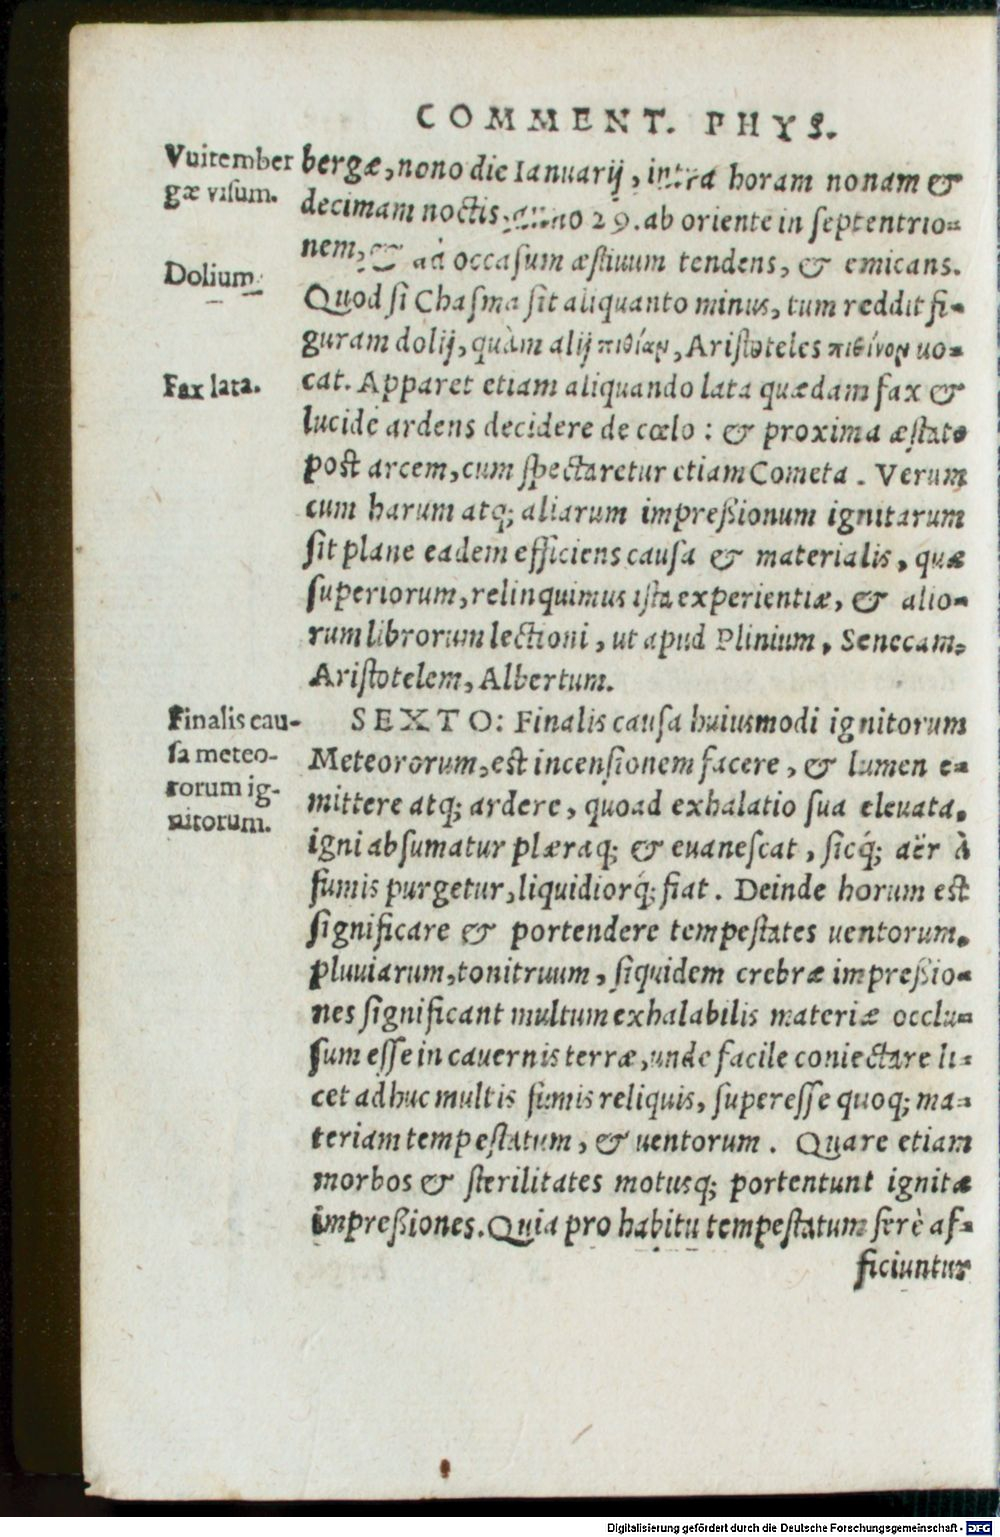 COMMENT. PHYS.
Vuitember
gæ visum.
bergæ, nono die Ianuarij, intra horam nonam &
decimam noctis, anno 29. ab oriente in septentrio-
nem, & ad occasum æstiuum tendens, & emicans.
Dolium.
Quod si Chasma sit aliquanto minus, tum reddit fi-
guram dolij, quàm alij πιθίαν, Aristoteles πιθίνον uo-
Fax lata.
cat. Apparet etiam aliquando lata quædam fax &
lucide ardens decidere de cœlo : & proxima æstate
post arcem, cum spectaretur etiam Cometa. Verum
cum harum atq; aliarum impreßionum ignitarum
sit plane eadem efficiens causa & materialis, quæ
superiorum, relinquimus ista experientiæ, & alio-
rum librorum lectioni, ut apud Plinium, Senecam,
Aristotelem, Albertum.
Finalis cau-
sa meteo-
rorum ig-
nitorum.
SEXTO: Finalis causa huiusmodi ignitorum
Meteororum, est incensionem facere, & lumen e-
mittere atq; ardere, quoad exhalatio sua eleuata,
igni absumatur plæraq; & euanescat, sicq́; aër à
fumis purgetur, liquidiorq́; fiat. Deinde horum est
significare & portendere tempestates uentorum,
pluuiarum, tonitruum, siquidem crebræ impreßio-
nes significant multum exhalabilis materiæ occlu-
sum esse in cauernis terræ, unde facile coniectare li-
cet adhuc multis fumis reliquis, superesse quoq; ma-
teriam tempestatum, & uentorum. Quare etiam
morbos & sterilitates motusq; portentunt ignitæ
impreßiones. Quia pro habitu tempestatum ferè af-
ficiuntur
Digitalisierung gefördert durch die Deutsche Forschungsgemeinschaft - DFG